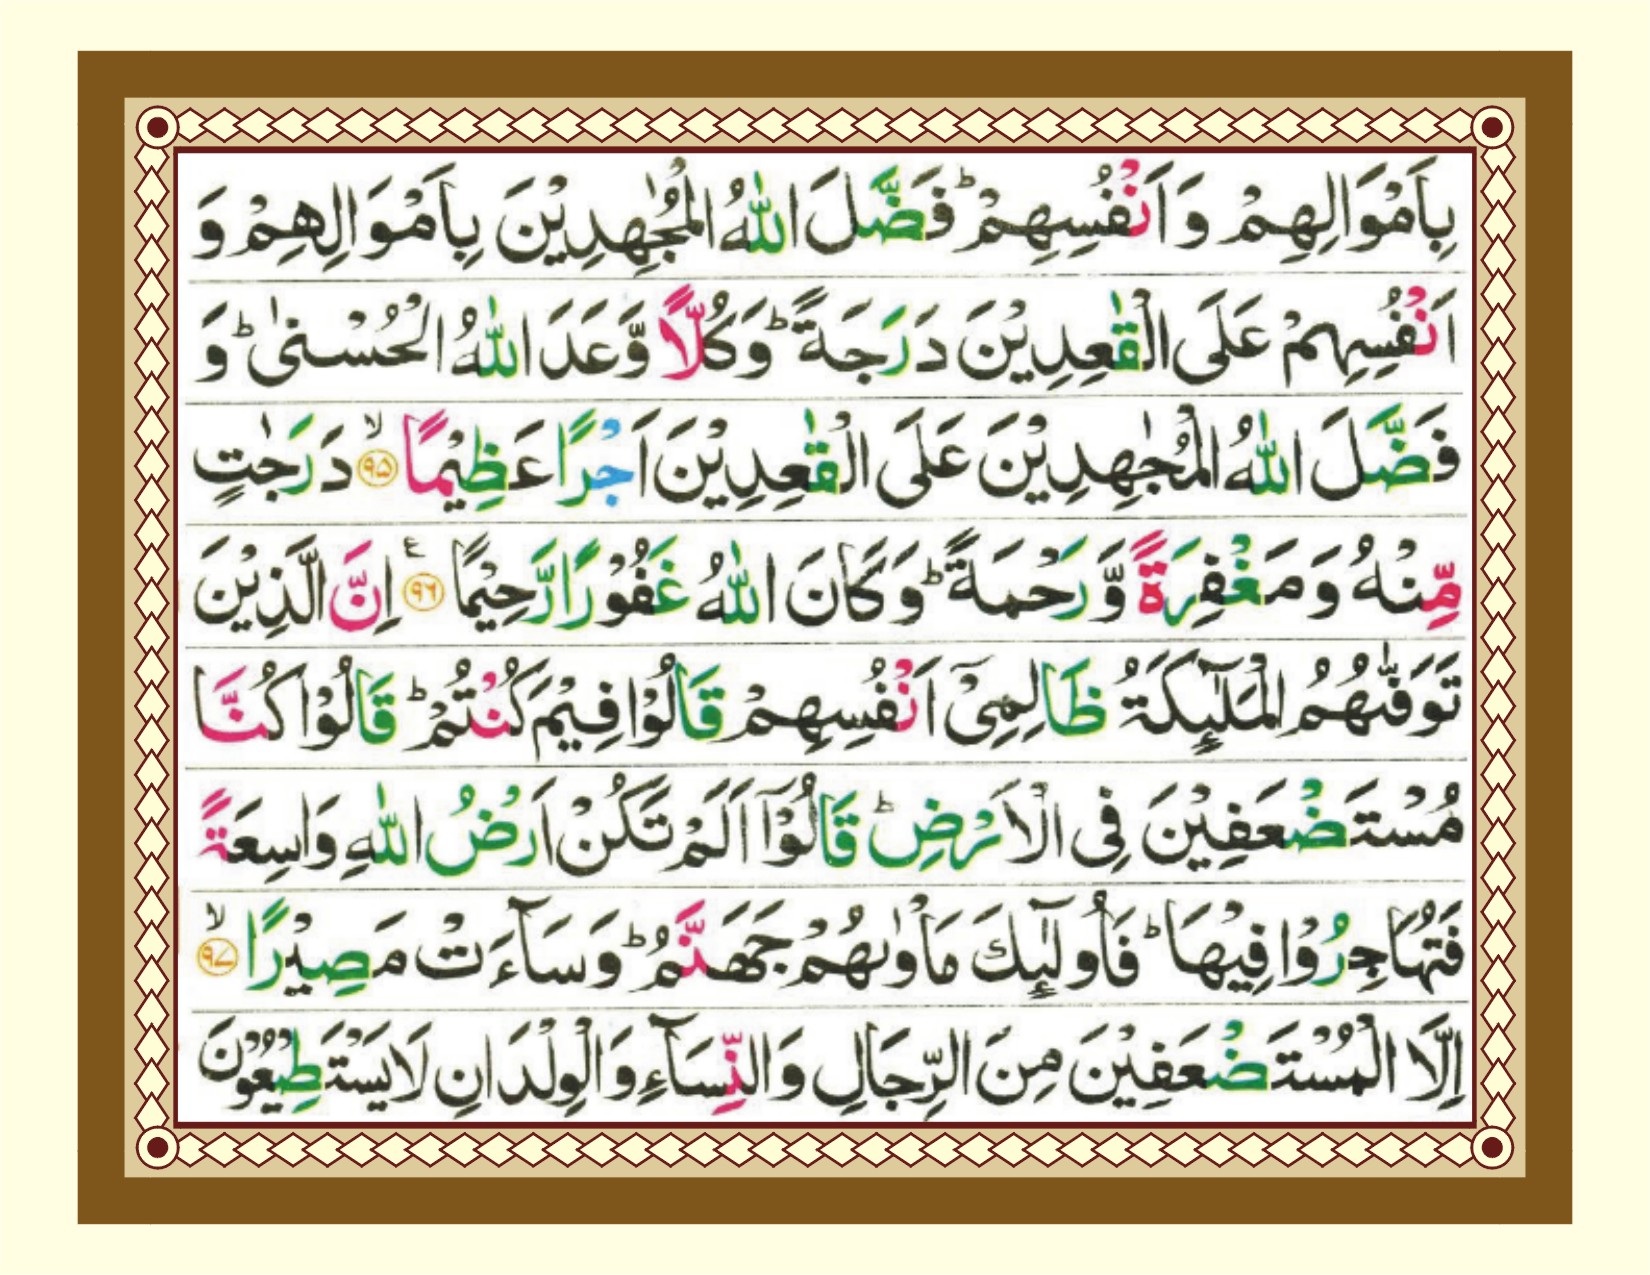 بِاَمْوَالِهِمْ وَ اَنْفُسِهِمْ ؕ فَضَّلَ اللّٰهُ الْمُجٰهِدِيْنَ بِاَمْوَالِهِمْ وَ
اَنْفُسِهِمْ عَلَى الْقٰعِدِيْنَ دَرَجَةً ؕ وَ كُلًّا وَّعَدَ اللّٰهُ الْحُسْنٰى ؕ وَ
فَضَّلَ اللّٰهُ الْمُجٰهِدِيْنَ عَلَى الْقٰعِدِيْنَ اَجْرًا عَظِيْمًا ۙ‏ ﴿۹۵﴾ دَرَجٰتٍ
مِّنْهُ وَ مَغْفِرَةً وَّ رَحْمَةً ؕ وَ كَانَ اللّٰهُ غَفُوْرًا رَّحِيْمًا ع ﴿۹۶﴾ اِنَّ الَّذِيْنَ
تَوَفّٰىهُمُ الْمَلٰٓئِكَةُ ظَالِمِىْۤ اَنْفُسِهِمْ قَالُوْا فِيْمَ كُنْتُمْ ؕ قَالُوْا كُنَّا
مُسْتَضْعَفِيْنَ فِى الْاَرْضِ ؕ قَالُوْۤا اَلَمْ تَكُنْ اَرْضُ اللّٰهِ وَاسِعَةً
فَتُهَاجِرُوْا فِيْهَا ؕ فَاُولٰٓئِكَ مَاْوٰىهُمْ جَهَنَّمُ ؕ وَسَآءَتْ مَصِيْرًا ۙ ﴿۹۷﴾
اِلَّا الْمُسْتَضْعَفِيْنَ مِنَ الرِّجَالِ وَ النِّسَآءِ وَ الْوِلْدَانِ لَا يَسْتَطِيْعُوْنَ